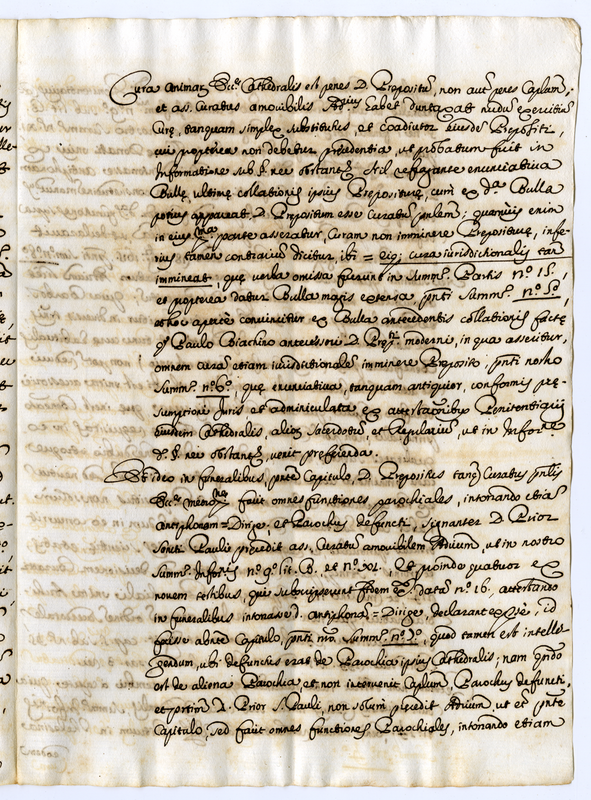 Cura animar. Eccl. Cathedralis est penes D. Prepositu, non aut penes Caplum;
et ass. Curatus amovibilis habet duntaxat nudu exercitiu
Curę, tanquam simplex substitutus, et coadiutor eiusde Prepositi,
cui propterea non debetur precedentia, ut probatum fuit in
Informatione sub §. nec obstante. Nil refragante enunciativa
Bullę ultimę collationis ipsius Prepositurę, cum ex da. Bulla
potius appareat, D. Prepositum esse Curatum; quamuis enim
in eius parte asseratur, Curam non imminere Prepositurę, infe-
rius tamen contrariu dicitur ibi = eiq; cura iurisdictionalis tan
immineat, quę verba omissa fuerunt in Summ. Partis no. 15,
et propterea datur Bulla magis extensa pnti Summ. no. 5o,
et hoc aperte convincitur ex Bulla antecedentis collationis factę
Paulo Biachino antecessori D. Prepti. moderni, in qua asseritur,
omnem cura etiam iurisdictionale imminere Preposito, pnti nosho
Summ. no. 6o, quę enunciativa, tanquam antiquior, conformis prę-
sumptioni Juris et adminiculata ex attestationibus Penitentiarii
eiusdem Cathedralis, alior Sacerdotu, et Regulariu, ut in Inform.
d. §. nec obstante, venit preferenda.
Et ideo in funeralibus, pnte Capitulo, D. Prepositus tanq Curatus
Eccl. facit omnes functiones parochiales, intonando etia
antiphonam = Dirige, et Parochus defuncti, signanter D. Prior
Sancti Pauli precedit ass. Curatu amovibilem, ut in nostro
Summ. no. 9o lit. B. et no. Et proinde quatuor ex
novem testibus, qui subscripserunt fidem data no. 16. attestando
in funeralibus intonasse d. antiphona = Dirige, declarant, id
fuisse absnte Capitulo, pnti no. Summ. no. quod tamen est intelli-
gendum, ubi defunctus erat de Parochia ipsius Cathedralis; nam qndo
est de aliena Parochia, et non intervenit Caplum, Parochus defuncti,
et D. Prior S. Pauli, non solum precedit, ut et pnte
Capitulo, sed facit omnes functiones Parochiales, intonando etiam